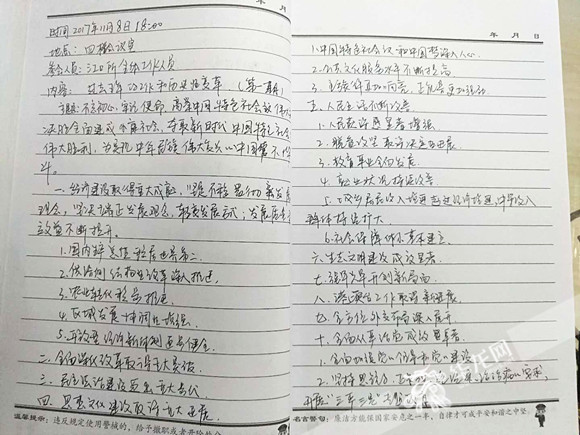 时间 2017年11月8日 18:00
地点: 四楼会议室
参会人员: 江口所全体工作人员
内容: 过去五年的工作和历史性变革 (第一期)
主题: 不忘初心, 牢记使命, 高举中国特色社会主义伟大
决胜全面建成小康社会, 夺取新时代中国特色社会
伟大胜利, 为实现中华民族伟大复兴的中国梦不懈
斗。
一. 经济建设取得重大成就, 坚定不移贯彻新发展
观念, 坚决端正发展观念, 转变发展方式, 发展质量
效益不断提升。
1. 国内生产总值稳居世界第二
2. 供给侧结构性改革深入推进,
3. 农业现代化稳步推进,
4. 区域发展协调性增强,
5. 开放型经济新体制逐步健全
二. 全面深化改革取得重大突破
三. 民主法治建设迈出重大步伐
四. 思想文化建设取得重大进展
温馨提示: 违反规定使用警械的, 给予撤职或者开除处分
年 月 日
1. 中国特色社会议和中国梦深入人心。
2. 公共文化服务水平不断提高
3. 主旋律更加响亮, 正能量更加强劲
五. 人民生活不断改善
1. 人民获得感显著增强。
2. 脱贫攻坚取得决定性进展。
3. 教育事业全面发展。
4. 就业状况持续改善
5. 城乡居民收入增速超过经济增速, 中等收入
群体持续扩大
6. 社会保障体系基本建立。
六. 生态文明建设成效显著
七. 强军兴军开创新局面
八. 港澳台工作取得新进展
九. 全方位外交布局深入展开
十. 全面从严治党成效卓著
1. 全面加强党的领导和党的建设
名言警句: 廉洁方能保国家安危之一半, 自律才可成平安和谐之中坚。